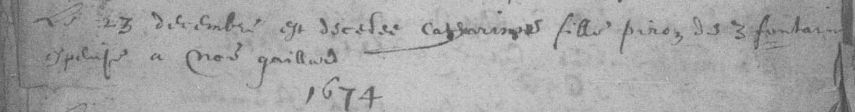 Le 23 decembre est decedee Catharinne fille piron de 3 fontain
espeuse a Noé gaillard
1674